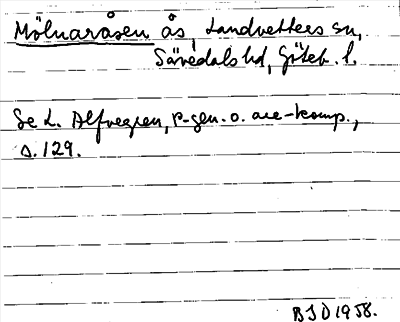 Mölnaråsen ås, Landvetters sn,
Sävedals hd, Göteb. l.
Se L. Alfvegren, r-gen. o. are-komp.,
s. 129.
BSD 1958.